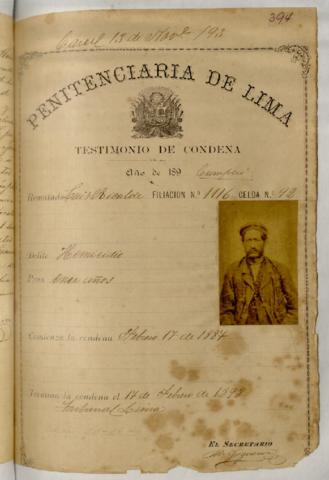 394
PENITENCIARIA DE LIMA
TESTIMONIO DE CONDENA
Año de 189
Rematado Luis FILIACION N.º 1116 CELDA N.º 92
Delito Homicidio
Pena once años
Comienza la condena Febrero 17 de 1887
Termina la condena el 17 de Febrero de 1898
Tribunal Lima
EL SECRETARIO